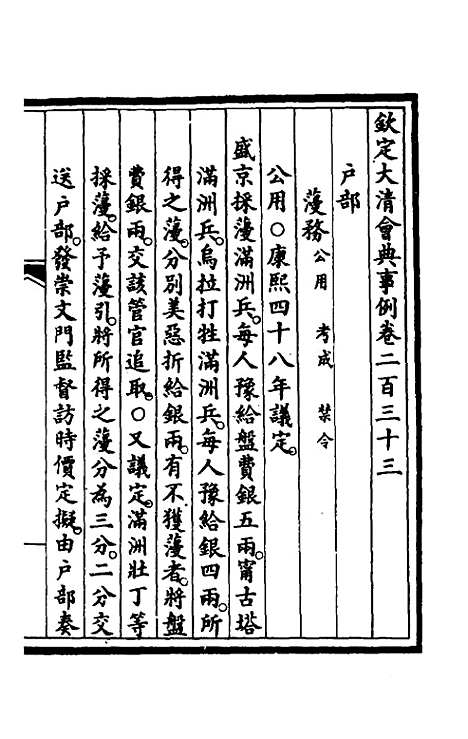 欽定大清會典事例卷二百三十三
户部
蓡務公用 考成 禁令
公用〇康熙四十八年議定。
盛京採蓡滿洲兵。每人豫給盤費銀五兩。甯古塔
滿洲兵。烏拉打牲滿洲兵。每人豫給銀四兩。所
得之蓡。分別美惡折給銀兩。有不獲蓡者。將盤
費銀兩。交該管官追取。〇又議定。滿洲壯丁等
採蓡。給予蓡引。將所得之蓡分為三分。二分交
送户部。發崇文門監督訪時價定擬。由户部奏